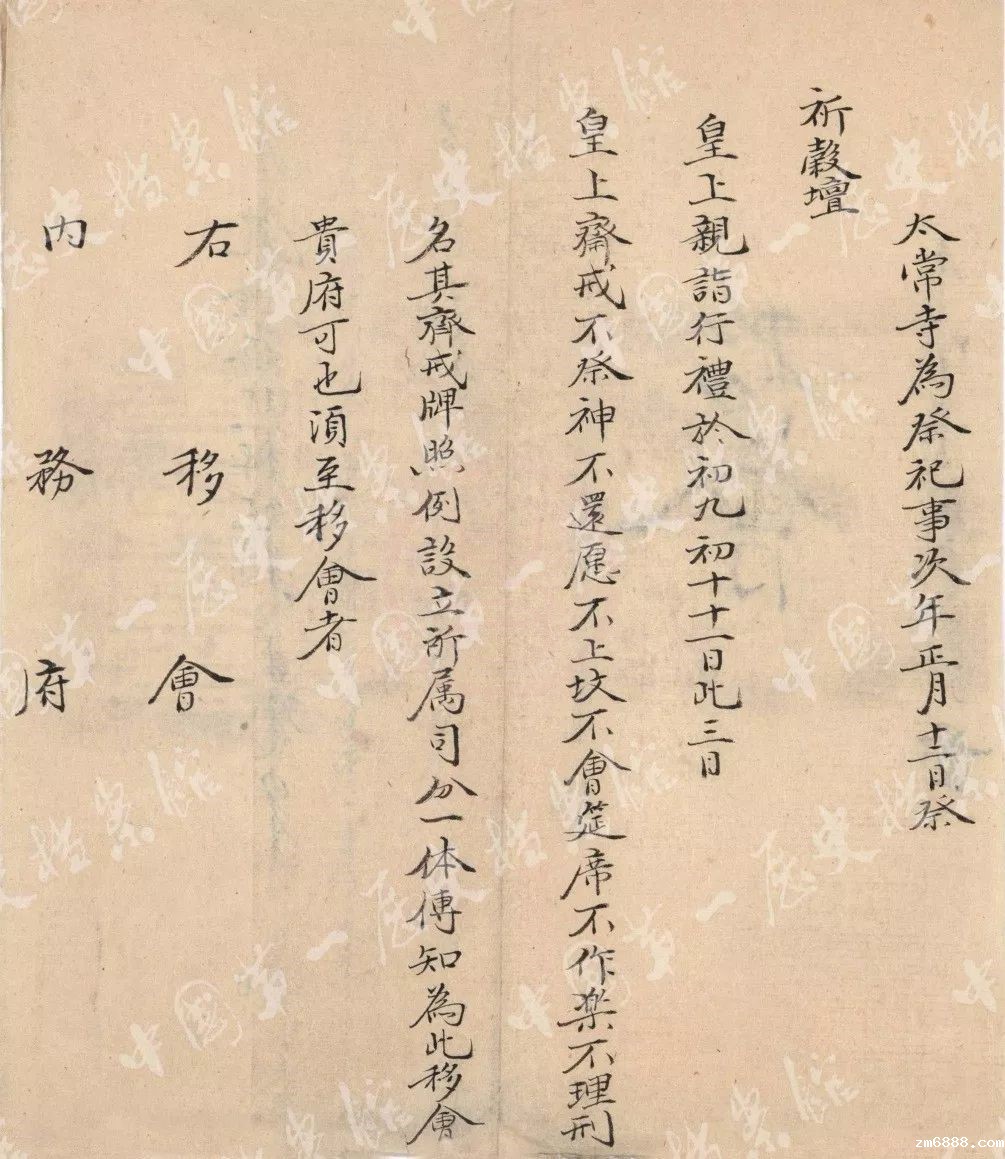 太常寺為祭祀事次年正月十二日祭
祈穀壇
皇上親詣行禮於初九初十十一日此三日
皇上齋戒不祭神不還愿不上坟不會筵席不作楽不理刑
名其齊戒牌照例設立所属司分一体傳知為此移會
貴府可也須至移會者
右移會
内務府
中國第一歷史檔案館
zm6888.com